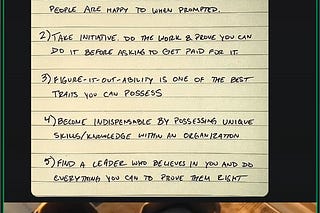 PEOPLE ARE HAPPY TO WHEN PROMPTED.
2) TAKE INITIATIVE. DO THE WORK & PROVE YOU CAN
DO IT BEFORE ASKING TO GET PAID FOR IT.
3) FIGURE-IT-OUT-ABILITY IS ONE OF THE BEST
TRAITS YOU CAN POSSESS
4) BECOME INDISPENSABLE BY POSSESSING UNIQUE
SKILLS/KNOWLEDGE WITHIN AN ORGANIZATION
5) FIND A LEADER WHO BELIEVES IN YOU AND DO
EVERYTHING YOU CAN TO PROVE THEM RIGHT